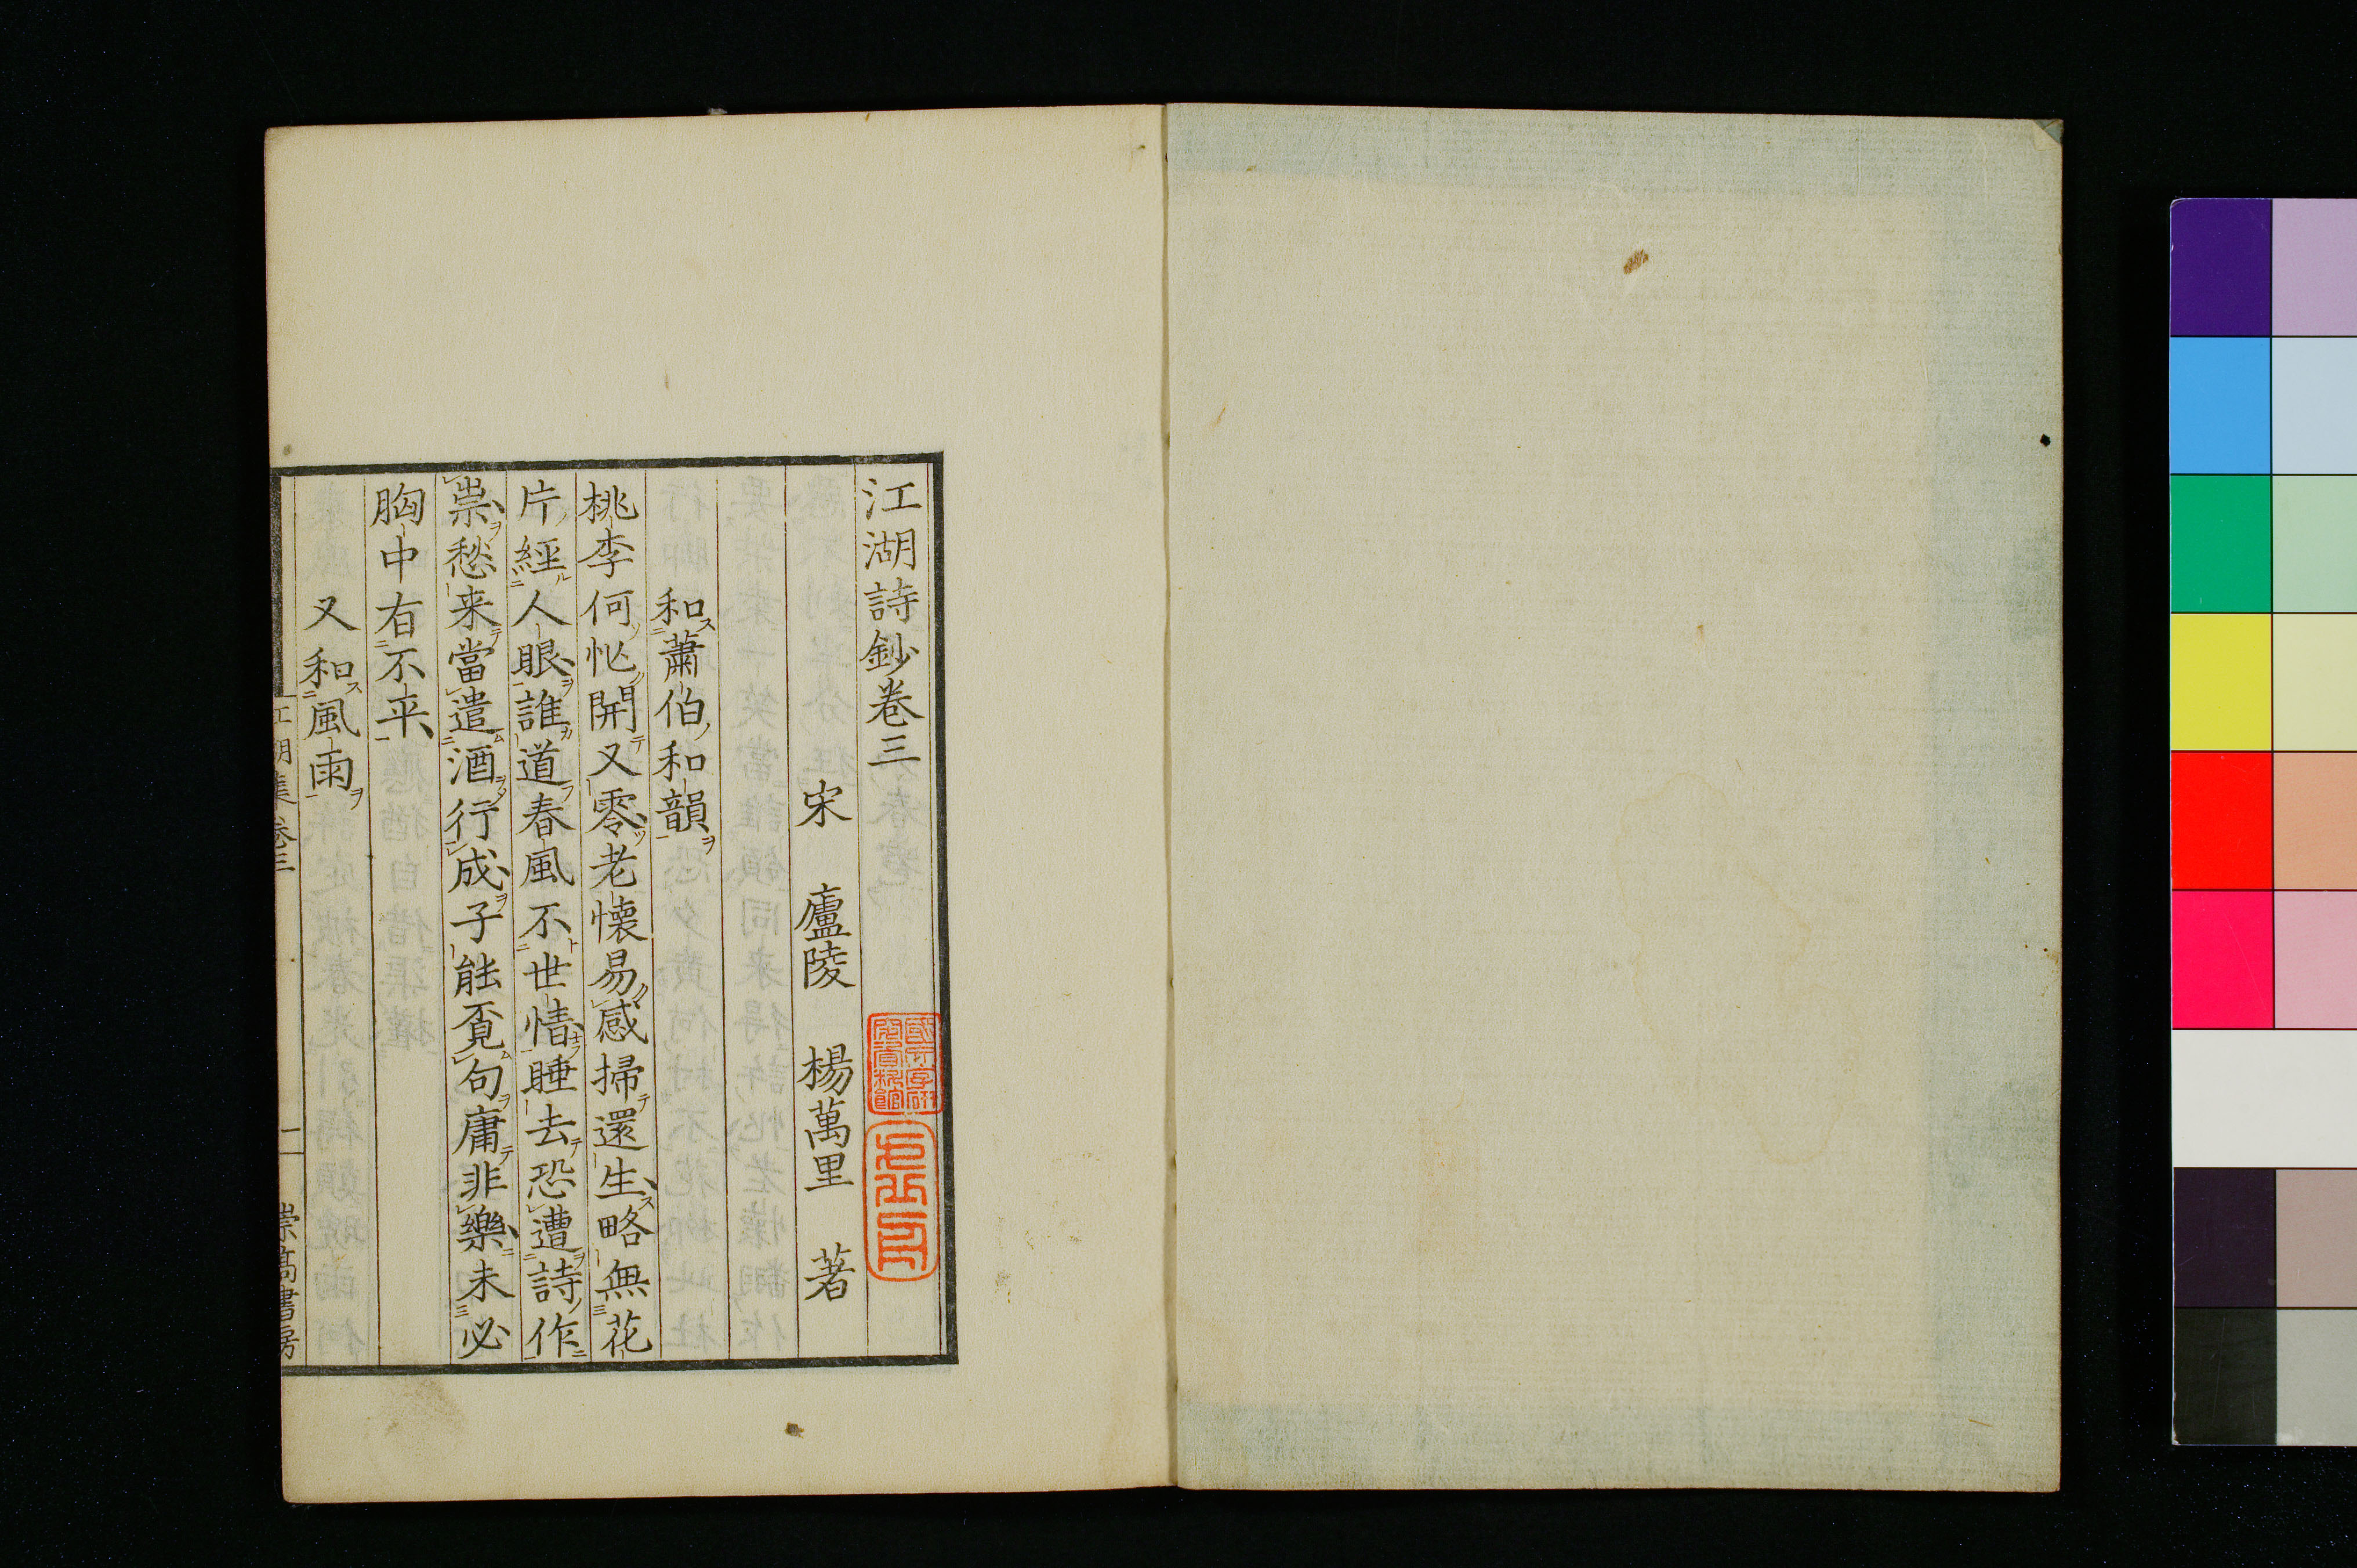 江湖詩鈔卷三
宋 廬陵 楊萬里 著
和蕭伯和韻
桃李何忙開又零老懷易感掃還生略無花
片經人眼誰道春風不世情睡去恐遭詩作
祟愁来當遣酒行成子能覔句庸非樂未必
胸中有不平
又和風雨
江湖集 卷三 崇高書房